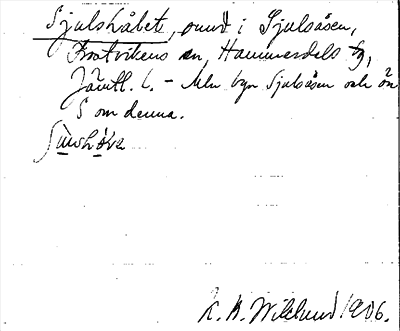 Sjulshåbete, omr̊ i Sjulsåsen,
Frostvikens sn, Hammerdals tg,
Jämtl. l. – Mln byn Sjulsåsen och ån
S om denna.
K. B. Wiklund 1906.